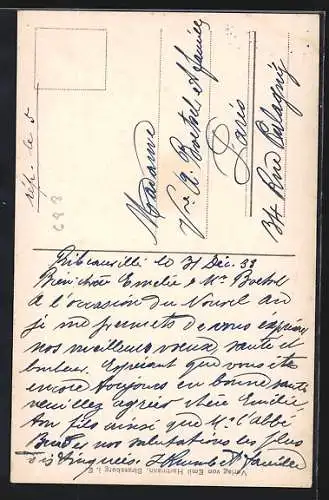 rép. le 5
Madame
Vve A. Boehol et famille
Paris
34 Rue
Ribeauvillé le 31 Déc. 33
Bien chère Emélie & Mr. Boehol
A l'occasion du Nouvel an
je me permets de vous exprimer
nos meilleurs voeux, santé et
bonheur. Espérant que vous êtes
encore toujours en bonne santé
veuillez agréer chère Emélie
ton fils ainsi que Mr. l'abbé
nos salutations les plus
distinguées. et famille
Verlag von Emil Hartmann, Strassburg i. E.